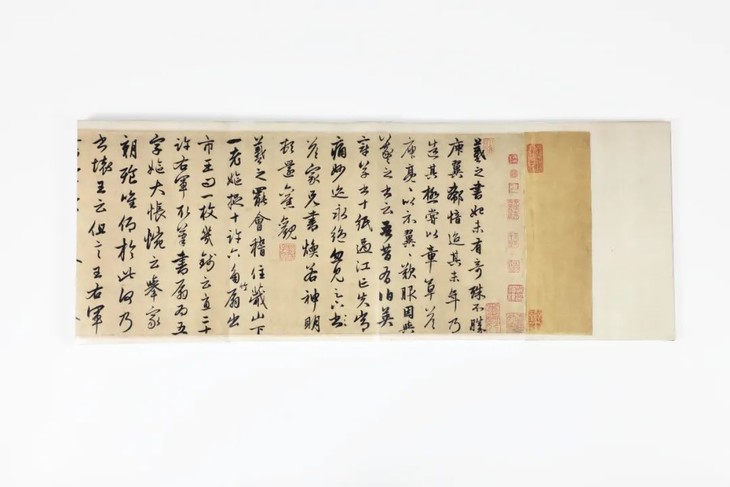 羲之書初未有奇殊不勝
庾翼郗愔迨其末年乃
造其極嘗以章草答
庾亮〻以示翼〻歎服因與
羲之書云吾昔有伯英
章草書十紙過江亡失常
痛妙迹永絕忽見
答家兄書煥若神明
頓還舊觀
羲之罷會稽住蕺山下
一老嫗捉十許六角竹扇出
市王問一枚幾錢云直二十
許右軍取筆書扇為五
字嫗大悵惋云舉家
朝飡唯仰於此何乃
書壞王云但言王右軍